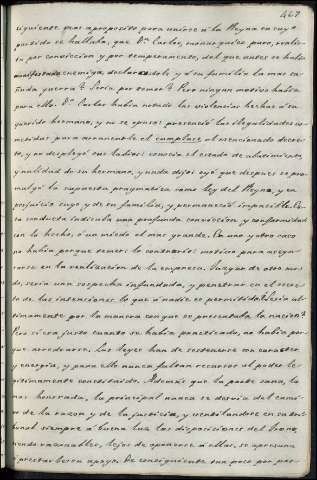 467
siguiente mas aproposito para unirse à la Reyna en cuyo
partido se hallaba, que Dn Carlos, monarquico puro, realis-
ta por conviccion y por temperamento, del que antes se habia
manifestado enemiga, declarandole y á su familia la mas sa-
ñuda guerra? Seria por temor? Pero ningun motivo habia
para ello. Dn Carlos habia notado las violencias hechas á su
querido hermano, y no se opuso: presenció las ilegalidades co-
metidas para arrancarle el cumplase al mencionado decre-
to, y no desplegó sus labios: conocia el estado de abatimiento
y nulidad de su hermano, y nada dijo: oyó que despues se pro-
mulgó la supuesta pragmatica como ley del Reyno, y en
perjuicio suyo y de su familia, y permaneció impasible. Es-
ta conducta indicaba una profunda conviccion y conformidad
con lo hecho, ó un miedo el mas grande. En uno y otro caso
no habia porque temer: lo contrario: motivos para asegu-
rarse en la realizacion de la empresa. Juzgar de otro mo-
do, seria una sospecha infundada, y penetrar en el secre-
to de las intenciones lo que á nadie es permitido. Seria ul-
timamente por la manera con que se presentaba la nacion?
Pero si era justo cuanto se habia practicado, no habia por-
que arredrarse. Las leyes han de sostenerse con caracter
y energia, y para ello nunca faltan recursos al poder le-
gitimamente constituido. Además que la parte sana, la
mas honrada, la principal nunca se desvia del cami-
no de la razon y de la justicia, y ventilandose en este tri-
bunal siempre á buena luz las disposiciones del trono,
siendo razonables, lejos de oponerse á ellas, se apresura
á prestarles su apoyo. De consiguiente era poco por par-